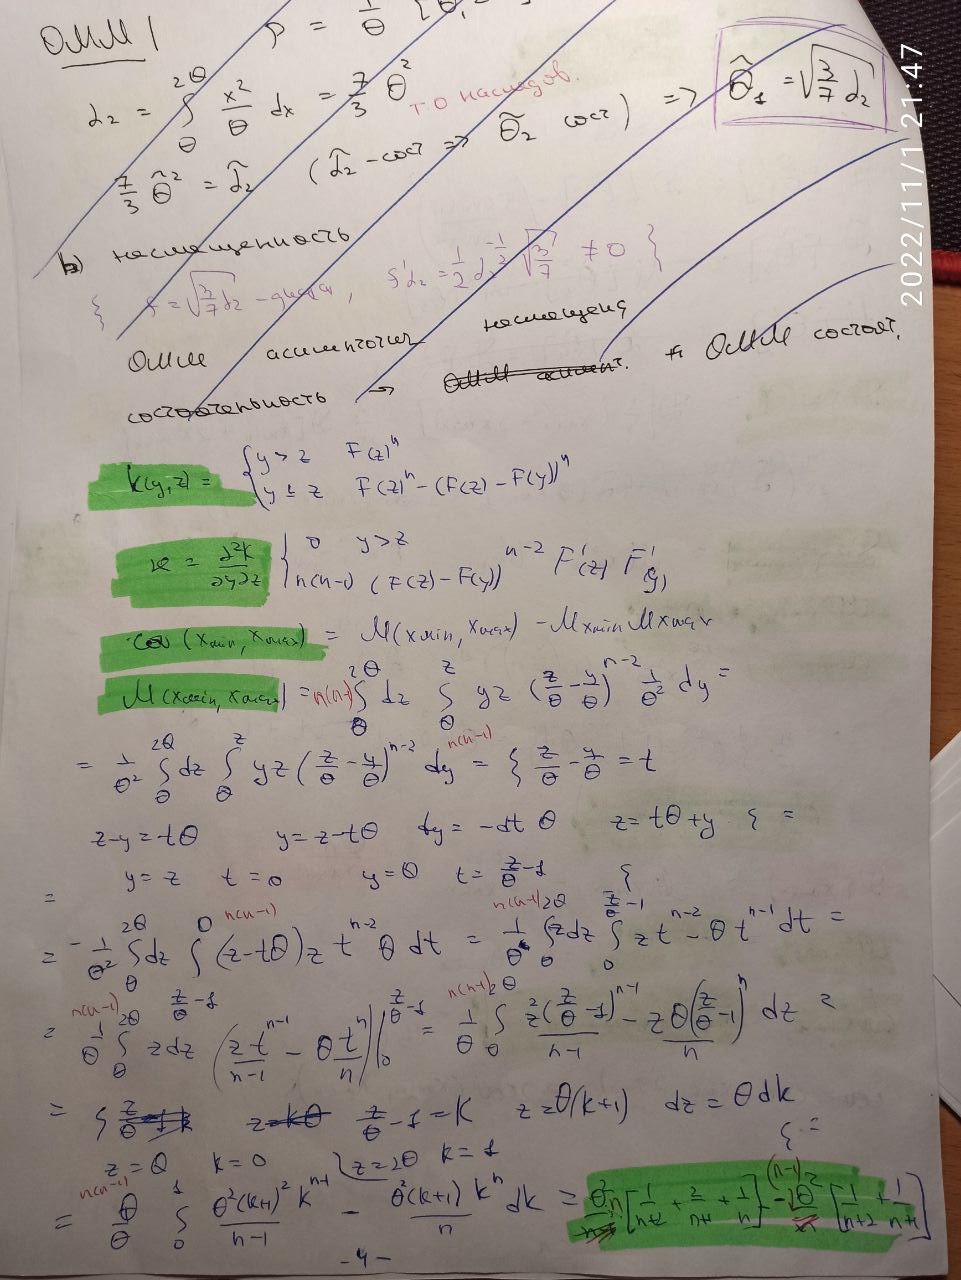 ОММ 1 p = 1/θ [θ,
α₂ = ∫_θ^{2θ} x²/θ dx = 7/3 θ²
7/3 θ̂² = α̂₂ (α̂₂ - сост => θ̃₂ сост) => θ̂₁ = √(3/7 α̂₂)
b) несмещенность
{ f = √(3/7 α₂) , f'α₂ = 1/2 α₂^{-1/2} √(3/7) ≠ 0 }
ОММ несмещена
состоятельность → ОММ состоят.
k(y,z) = { y > z F(z)ⁿ
y ≤ z F(z)ⁿ - (F(z) - F(y))ⁿ
æ = ∂²k/∂y∂z { 0 y>z
n(n-1) (F(z) - F(y))^{n-2} F'(z) F'(y)
cov (xmin, xmax) = M(xmin, xmax) - Mxmin Mxmax
M(xmin, xmax) = n(n-1) ∫_θ^{2θ} dz ∫_θ^z yz (z/θ - y/θ)^{n-2} 1/θ² dy =
= 1/θ² ∫_θ^{2θ} dz ∫_θ^z yz (z/θ - y/θ)^{n-2} dy n(n-1) = { z/θ - y/θ = t
z-y = tθ y = z-tθ dy = -dt θ z = tθ+y } =
= y = z t = 0 y = θ t = z/θ - 1 {
= - 1/θ² ∫_θ^{2θ} dz ∫^0 n(n-1) (z-tθ) z t^{n-2} θ dt = n(n-1) 1/θ ∫_θ^{2θ} z dz ∫_0^{z/θ-1} z t^{n-2} - θ t^{n-1} dt =
= n(n-1) 1/θ ∫_θ^{2θ} z dz (z t^{n-1}/(n-1) - θ tⁿ/n) |_0^{z/θ-1} = n(n-1) 1/θ ∫_θ^{2θ} z² (z/θ - 1)^{n-1}/(n-1) - zθ (z/θ - 1)ⁿ/n dz =
= { z/θ - 1 = k z = θ(k+1) dz = θ dk
z = θ k = 0 z = 2θ k = 1 } =
= n(n-1) θ/θ ∫_0^1 θ²(k+1)² k^{n-1}/(n-1) - θ²(k+1) kⁿ/n dk = θ² n [1/(n+2) + 2/(n+1) + 1/n] - (n-1) θ² [1/(n+2) + 1/(n+1)]
-4-
2022/11/1 21:47